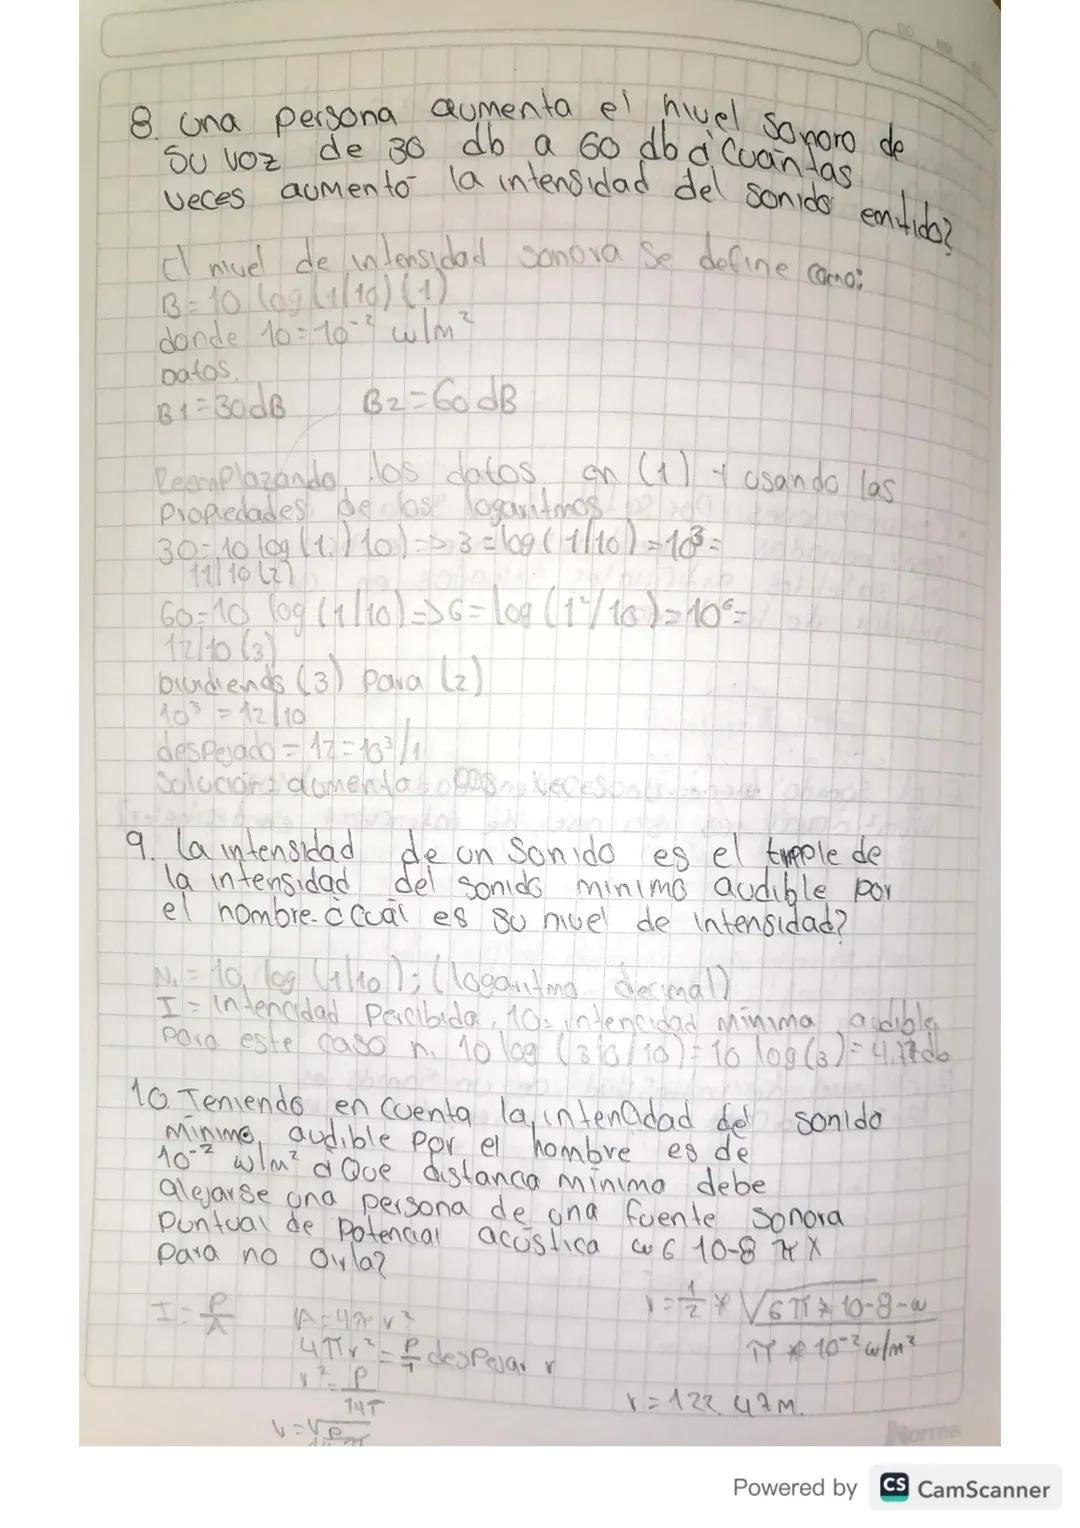 8. una persona aumenta el nivel sonoro de
su voz de 30 db a 60 db ¿Cuantas
veces aumento la intensidad del sonido emitido?
El nivel de intensidad sonora se define como:
B=10 log (1/10) (1)
donde 10=10⁻² w/m²
Datos.
B1=30dB B2=60dB
Reemplazando los datos en (1) y usando las
propiedades de los logaritmos
30=10 log (1/10)=>3=log(1/10)=10³=
11/10 (2)
60=10 log (1/10)=>6=log(1²/10)=10⁶=
12/10 (3)
Dividiendo (3) para (2)
10³ = 12/10
despejado = 12=10³/1
Solución= aumenta veces
9. la intensidad de un sonido es el triple de
la intensidad del sonido minimo audible por
el hombre. ¿Cuál es su nivel de intensidad?
N.=10 log (1/10); (logaritmo decimal)
I = Intencidad Percibida, 10= intencidad minima audible
para este caso n. 10 log (310/10)=10 log(3)=4.77db
10. Teniendo en cuenta la intencidad del sonido
minimo audible por el hombre es de
10⁻² w/m² ¿Que distancia minima debe
alejarse una persona de una fuente sonora
Puntual de potencial acústica w 6 10-8 π X
para no oirla?
I=P/A A=4πr² r=1/2 * √6π*10-8-w / π*10⁻²w/m²
4πr²=P/I despejar r
r²=P/I4π r=122.47m.
r=√P
Norma
Powered by CS CamScanner